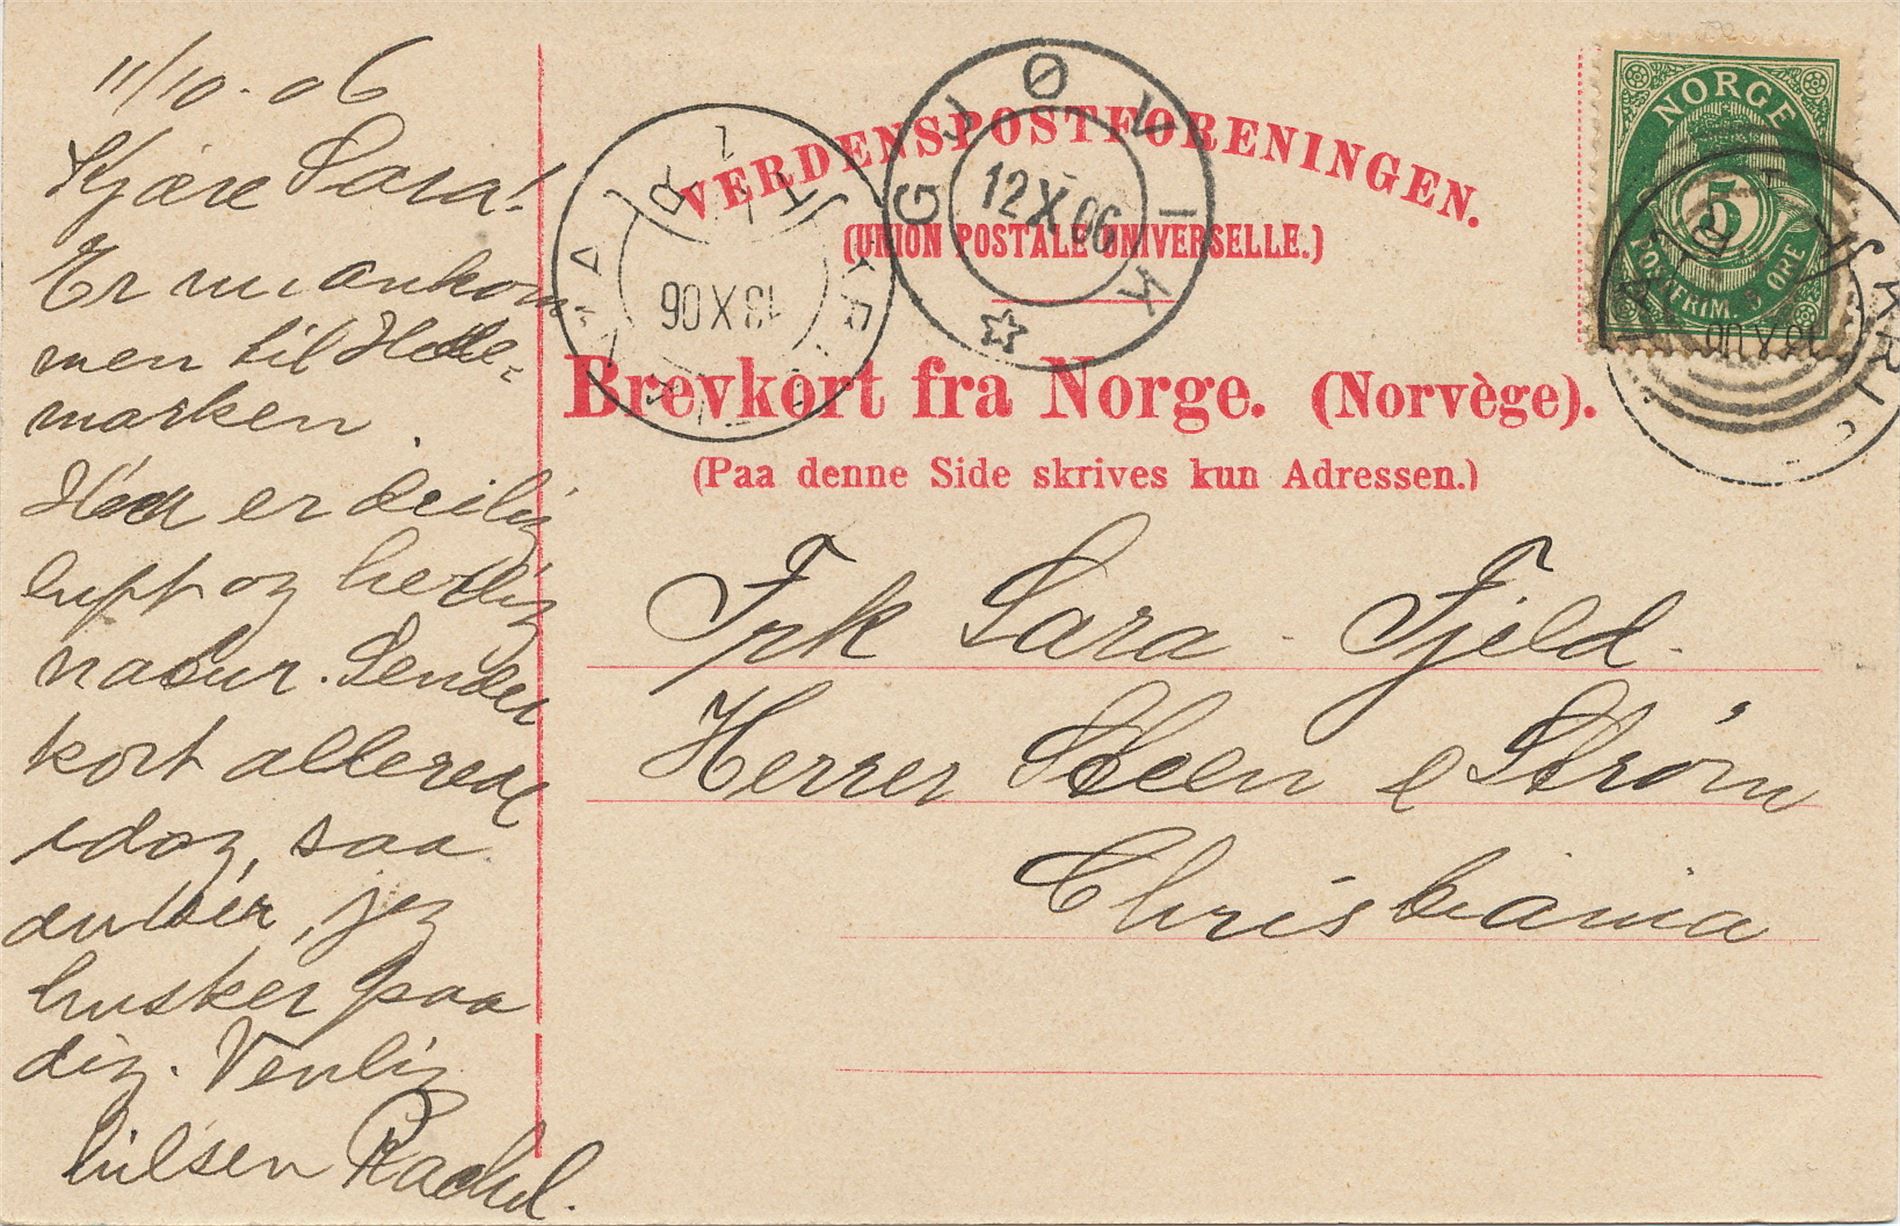 11/10-06
Kjære Sara!
Er nu ankom-
men til Hede-
marken.
Her er deilig
luft og herlig
natur. Sender
kort allerede
idag, saa
du ser, jeg
husker paa
dig. Venlig
hilsen Rachel.
VERDENSPOSTFORENINGEN.
(UNION POSTALE UNIVERSELLE.)
Brevkort fra Norge. (Norvège).
(Paa denne Side skrives kun Adressen.)
GJØVIK
12 X 06
13 X 06
NORGE
5
POSTFRIM. 5 ØRE
13 X 06
Frk Sara Fjeld.
Herrer Steen & Strøm
Christiania